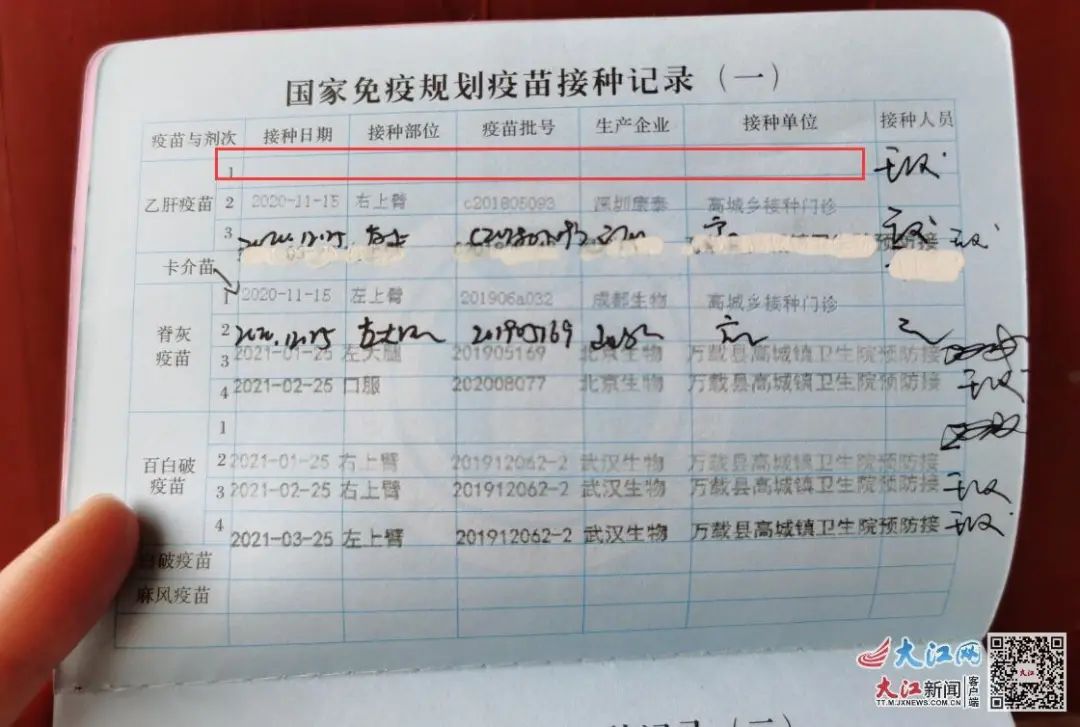 国家免疫规划疫苗接种记录（一）
疫苗与剂次 接种日期 接种部位 疫苗批号 生产企业 接种单位 接种人员
乙肝疫苗
1
2 2020-11-15 右上臂 c201805093 深圳康泰 高城乡接种门诊
3 2020.12.25 预防接
卡介苗
脊灰疫苗
1 2020-11-15 左上臂 201906a032 成都生物 高城乡接种门诊
2 2020.12.25 201905169
3 2021-01-25 左大腿 201905169 北京生物 万载县高城镇卫生院预防接
4 2021-02-25 口服 202008077 北京生物 万载县高城镇卫生院预防接
百白破疫苗
1
2 2021-01-25 右上臂 201912062-2 武汉生物 万载县高城镇卫生院预防接
3 2021-02-25 右上臂 201912062-2 武汉生物 万载县高城镇卫生院预防接
4 2021-03-25 左上臂 201912062-2 武汉生物 万载县高城镇卫生院预防接
破疫苗
麻风疫苗
大江网
大江新闻 客户端
TT.M.JXNEWS.COM.CN